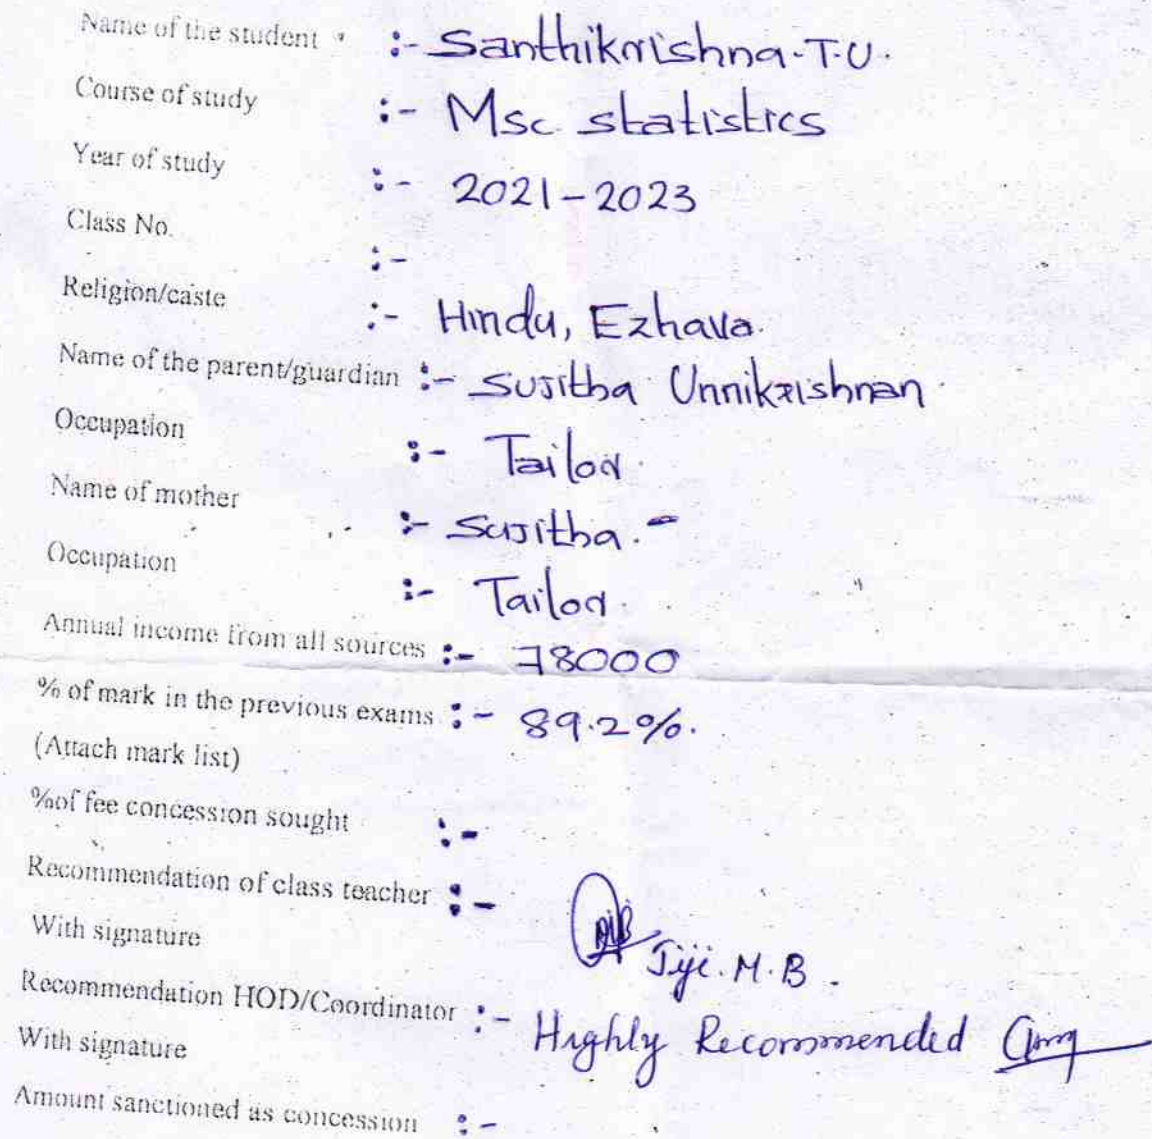 Name of the student :- Santhikrishna.T.U.
Course of study :- Msc. statistics
Year of study :- 2021-2023
Class No. :-
Religion/caste :- Hindu, Ezhava.
Name of the parent/guardian :- Sujitha Unnikrishnan.
Occupation :- Tailor.
Name of mother :- Sujitha.-
Occupation :- Tailor.
Annual income from all sources :- 78000
% of mark in the previous exams :- 89.2%.
(Attach mark list)
%of fee concession sought :-
Recommendation of class teacher :-
With signature Jiji.M.B.
Recommendation HOD/Coordinator :- Highly Recommended
With signature
Amount sanctioned as concession :-